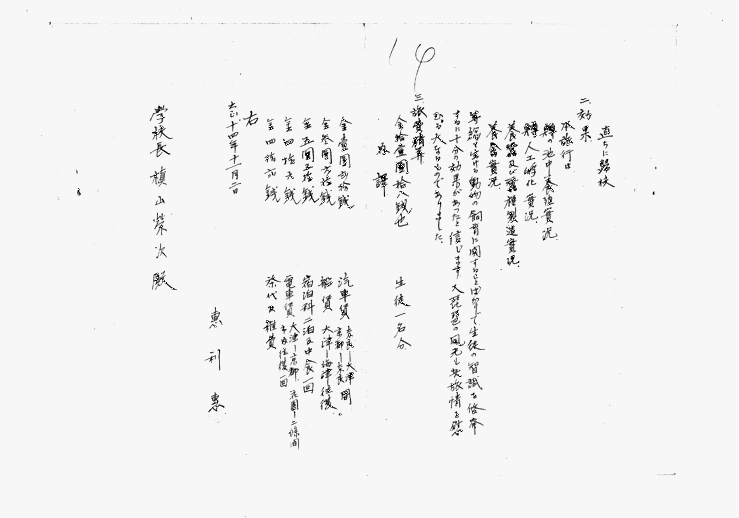 直ちに帰校
二、効果
本旅行は
鱒の池中養殖實況
鱒人工孵化實況
養蚕及び蚕種製造實況
養禽實況
等 動物の飼育に関する 生徒の智識を
するに十分の効果があったと信じます 又琵琶の風光も 旅情を慰
むる大なるものでありました
三、旅費精算
金拾壹圓拾八銭也 生徒一名分
内譯
金壹圓 拾銭 汽車賃 奈良―大津間 京都―奈良
金参圓六拾銭 船賃 大津―海津往復
金五圓五拾銭 宿泊料二泊及中食一回
金四拾六銭 電車賃 大津―京都 二條間 往復一回
金四拾 銭 茶代及雑費
右
大正十四年十一月二日
惠利惠
學校長 槙山榮次殿